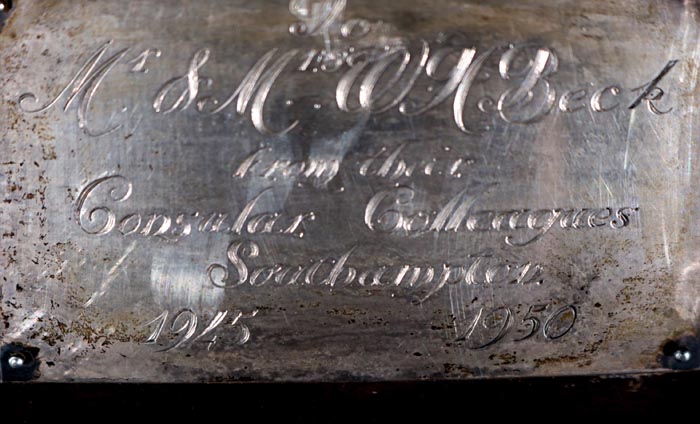 To
Mr & Mrs W H Beck
from their
Consular Colleagues
Southampton
1945 1950